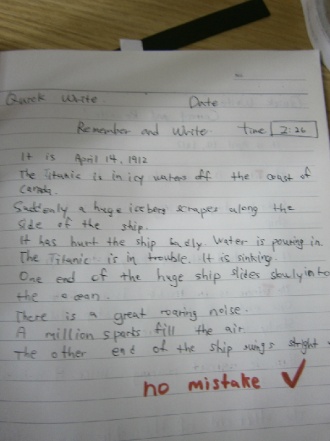 Quick Write. Date
Remember and Write. time 2:26
It is April 14, 1912
The Titanic is in icy waters off the coast of
Canada.
Suddenly a huge iceberg scrapes along the
side of the ship.
It has hurt the ship badly. Water is pouring in.
The Titanic is in trouble. It is sinking.
One end of the huge ship slides slowly into
the ocean.
There is a great roaring noise.
A million sparts fill the air.
The other end of the ship swings stright
no mistake ✓